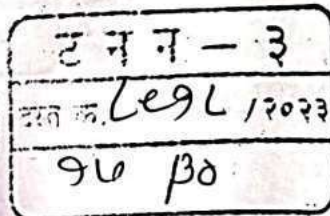 ट न न - ३
दस्त क्र. ८९१८ /२०२३
१७ ३०